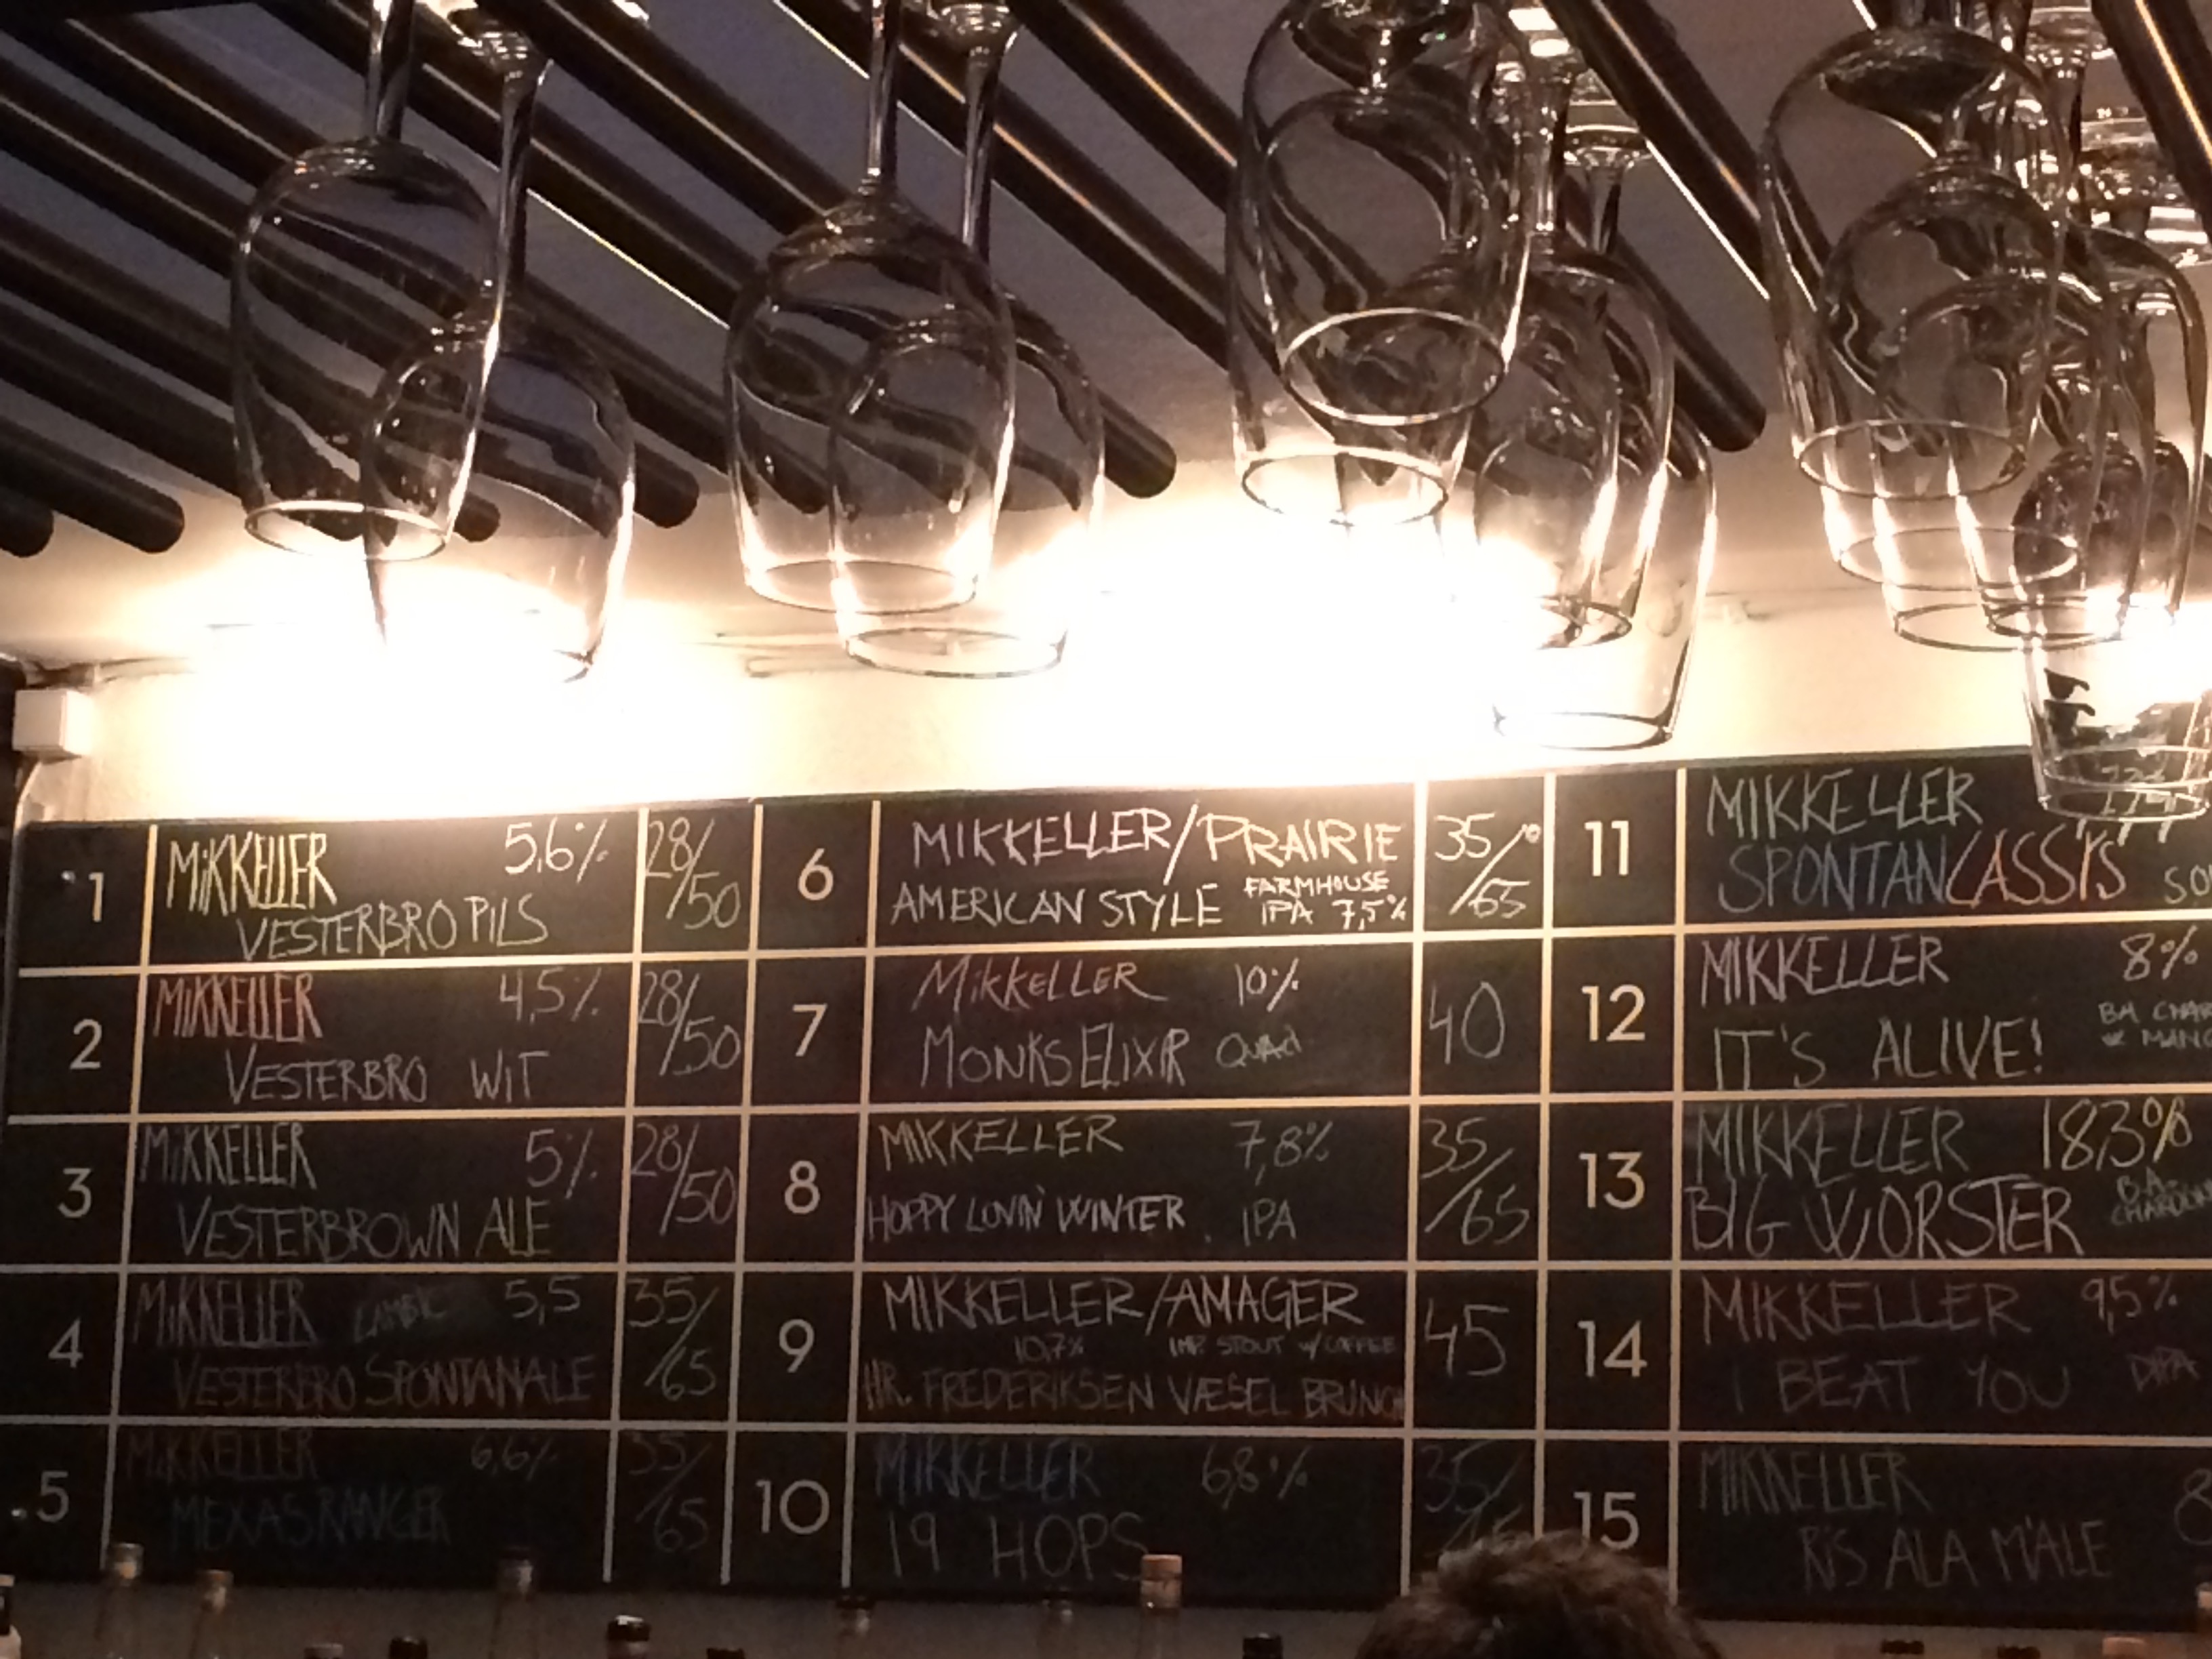 1
MIKKELLER 5,6% 28/50
VESTERBRO PILS
2
MIKKELLER 4,5% 28/50
VESTERBRO WIT
3
MIKKELLER 5% 28/50
VESTERBROWN ALE
4
MIKKELLER LAMBIC 5,5 35/65
VESTERBRO SPONTANALE
5
MIKKELLER 6,6% 35/65
MEXAS RANGER
6
MIKKELLER/PRAIRIE 35/65
AMERICAN STYLE FARMHOUSE
IPA 7,5%
7
MIKKELLER 10% 40
MONKS ELIXIR QUAD
8
MIKKELLER 7,8% 35/65
HOPPY LOVIN' WINTER IPA
9
MIKKELLER/AMAGER 45
10,7% IMP. STOUT W/COFFEE
HR. FREDERIKSEN VÆSEL BRUNCH
10
MIKKELLER 6,8% 35/
19 HOPS
11
MIKKELLER
SPONTANCASSIS
12
MIKKELLER 8%
IT'S ALIVE! BA
13
MIKKELLER 18,3%
BIG WORSTER B.A.
14
MIKKELLER 9,5%
I BEAT YOU DIPA
15
MIKKELLER 8
RIS ALA M'ALE